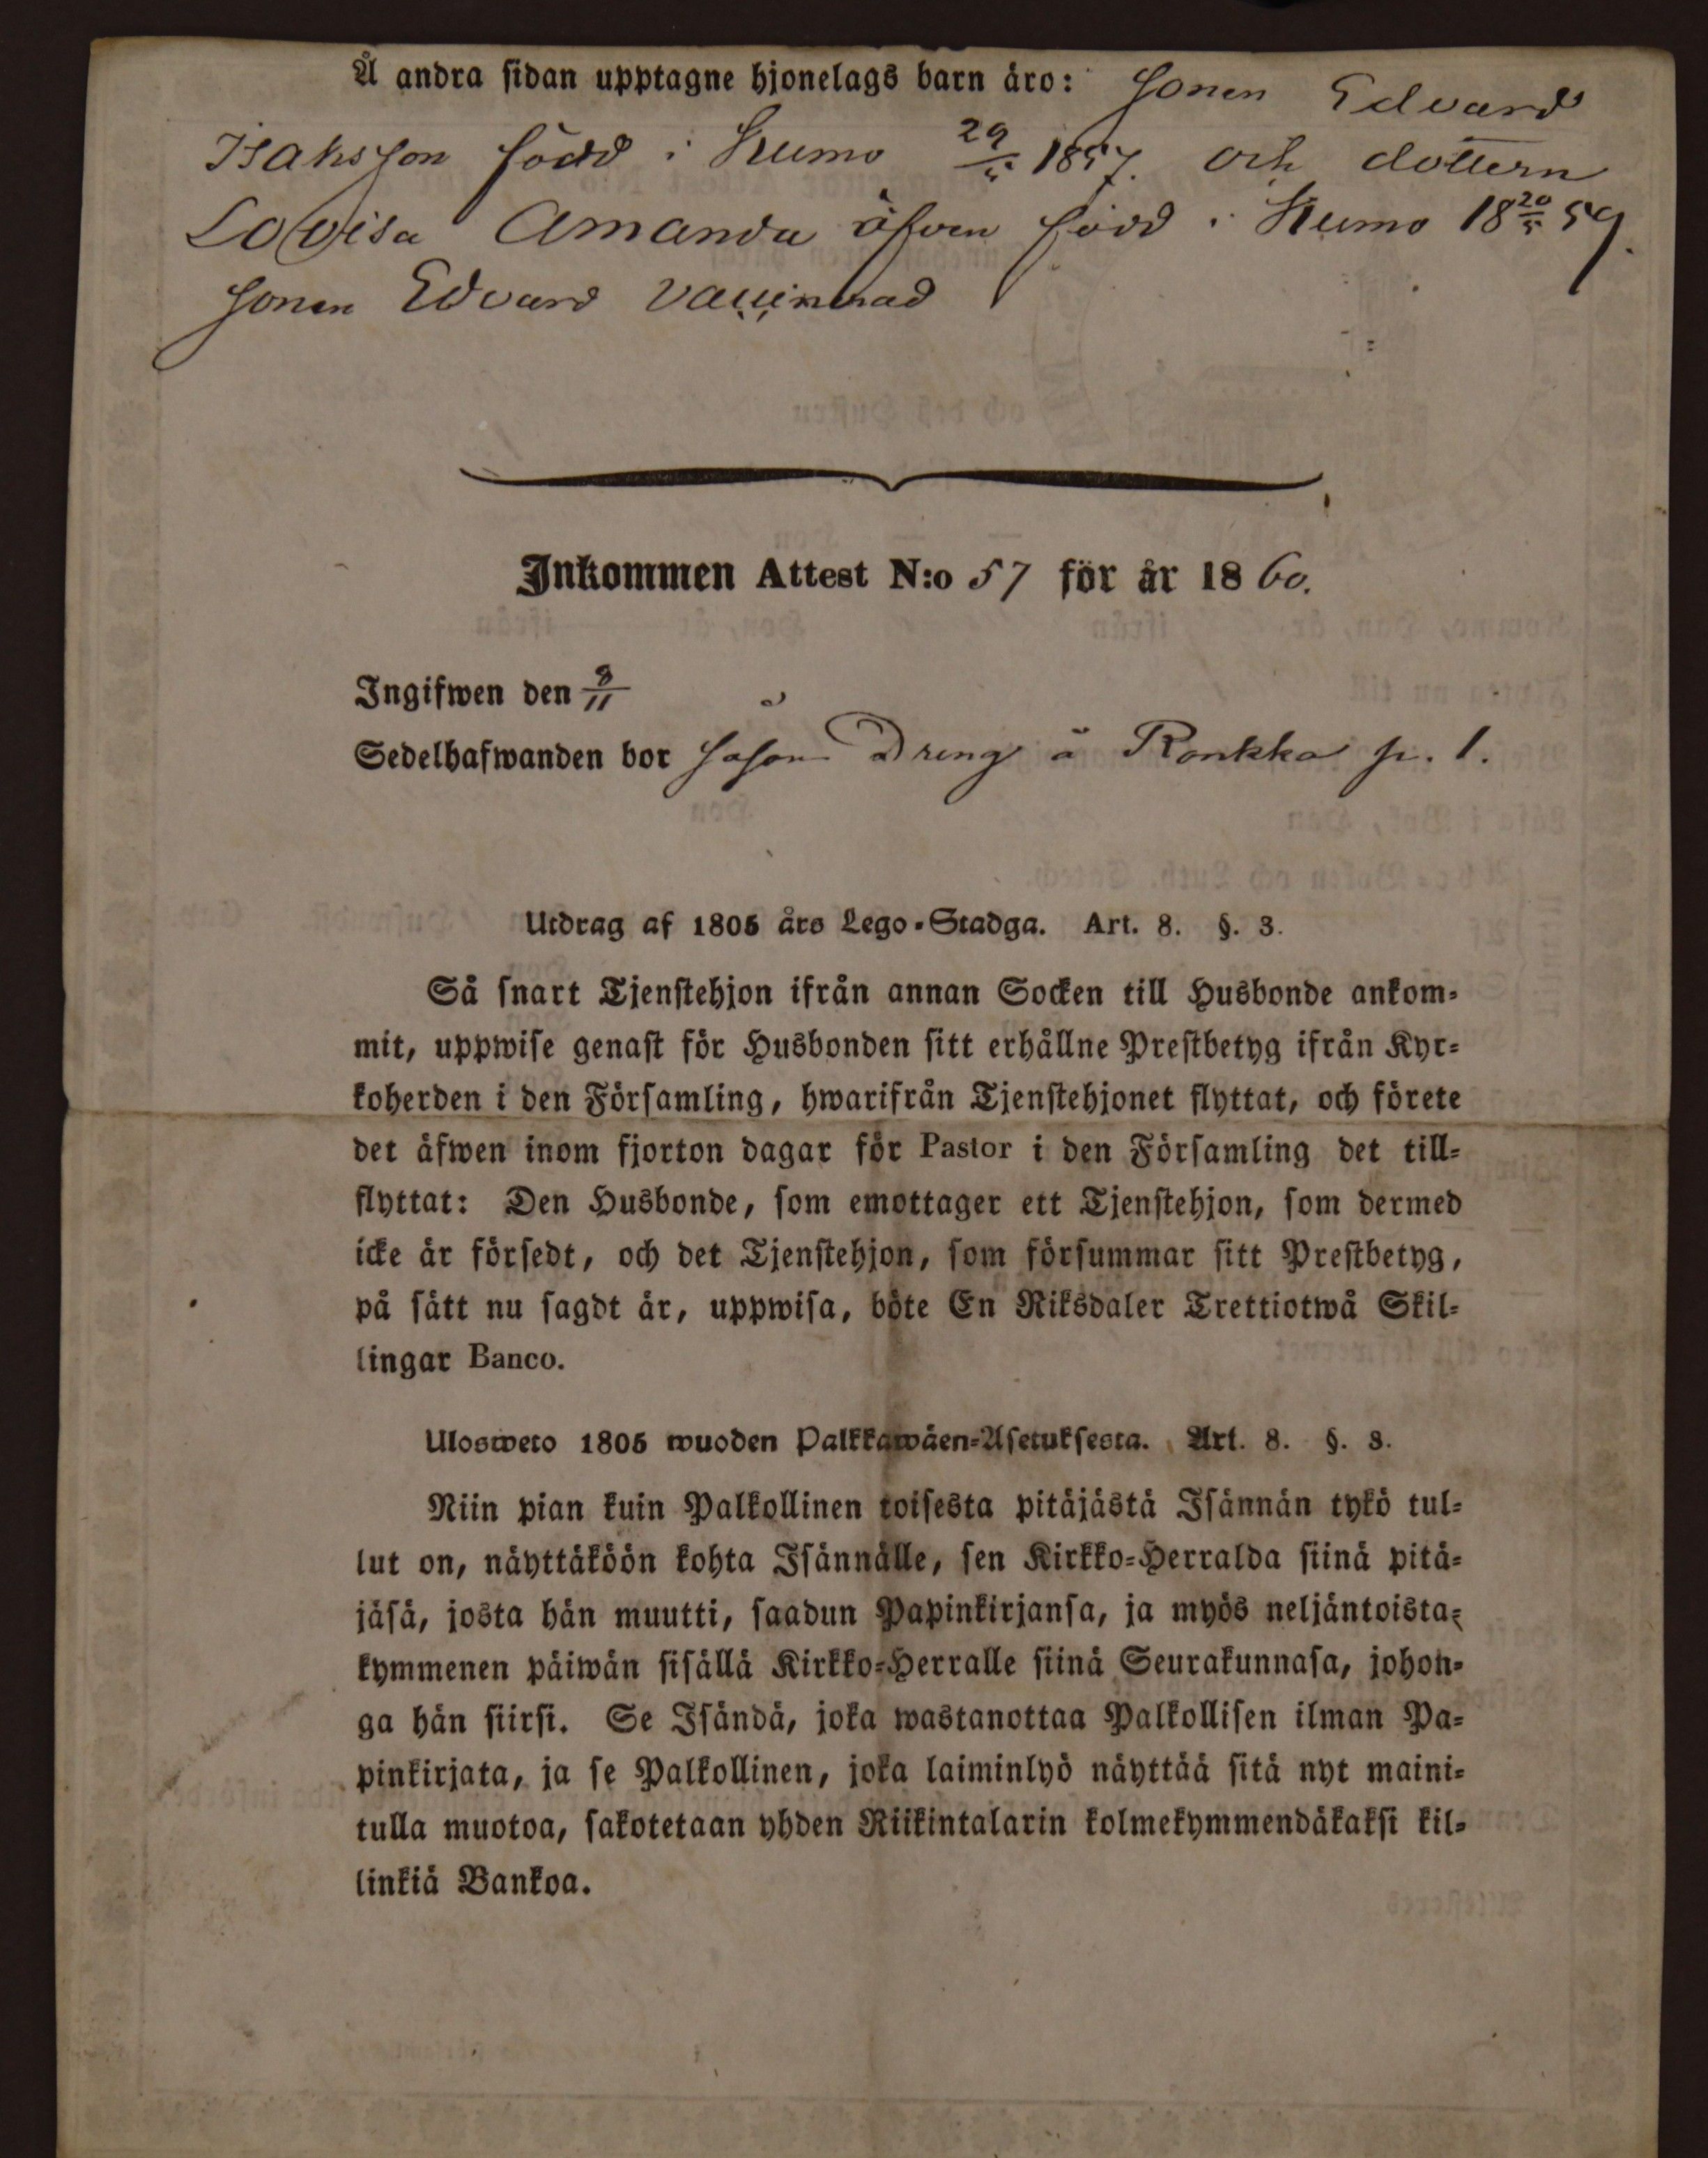 Å andra sidan upptagne hjonelags barn äro: Sonen Edvard
Isaksson född i Kumo 29/5 1857. och dottern
Lovisa Amanda äfven född i Kumo 18 20/5 59.
Sonen Edvard vaccinerad
Inkommen Attest N:o 57 för år 1860.
Ingifwen den 3/11
Sedelhafwanden bor såsom Dreng å Ronkka p. 1.
Utdrag af 1805 års Lego-Stadga. Art. 8. §. 3.
Så snart Tjenstehjon ifrån annan Socken till Husbonde ankom-
mit, uppwise genast för Husbonden sitt erhållne Prestbetyg ifrån Kyr-
koherden i den Församling, hwarifrån Tjenstehjonet flyttat, och förete
det äfwen inom fjorton dagar för Pastor i den Församling det till-
flyttat: Den Husbonde, som emottager ett Tjenstehjon, som dermed
icke är försedt, och det Tjenstehjon, som försummar sitt Prestbetyg,
på sätt nu sagdt är, uppwisa, böte En Riksdaler Trettiotwå Skil-
lingar Banco.
Ulosweto 1805 wuoden Palkkawäen-Asetuksesta. Art. 8. §. 3.
Niin pian kuin Palkollinen toisesta pitäjästä Isännän tykö tul-
lut on, näyttäköön kohta Isännälle, sen Kirkko-Herralda siinä pitä-
jäsä, josta hän muutti, saadun Papinkirjansa, ja myös neljäntoista-
kymmenen päiwän sisällä Kirkko-Herralle siinä Seurakunnasa, johon-
ga hän siirsi. Se Isändä, joka wastanottaa Palkollisen ilman Pa-
pinkirjata, ja se Palkollinen, joka laiminlyö näyttää sitä nyt maini-
tulla muotoa, sakotetaan yhden Riikintalarin kolmekymmendäkaksi kil-
linkiä Bankoa.